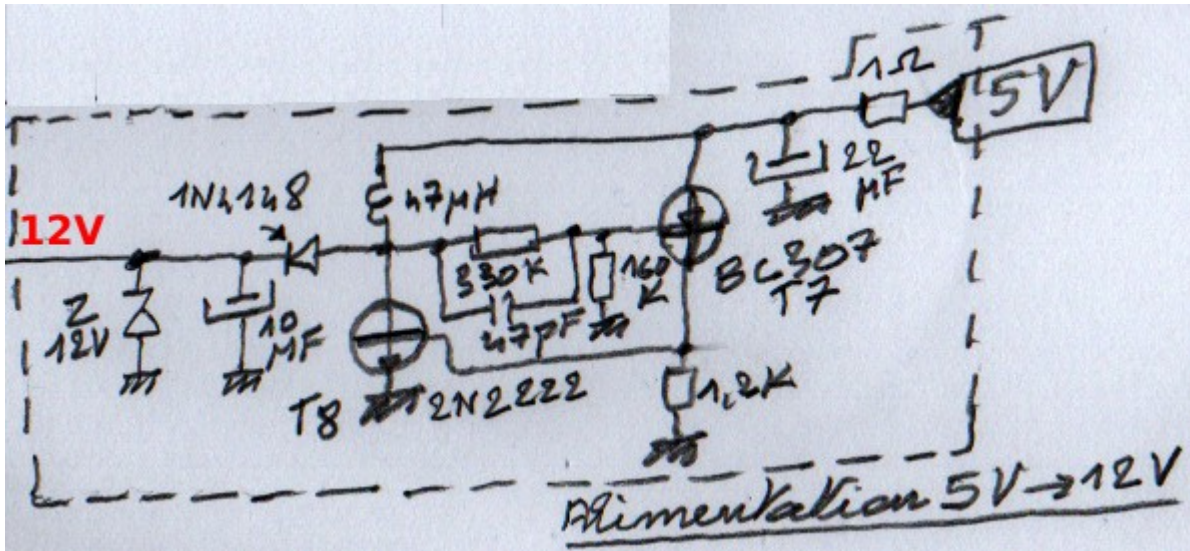 1Ω
5V
22
µF
1N4148
47µH
12V
330K
160
K
BC307
T7
Z
12V
10
µF
47pF
T8
2N2222
1,2K
Alimentation 5V→12V